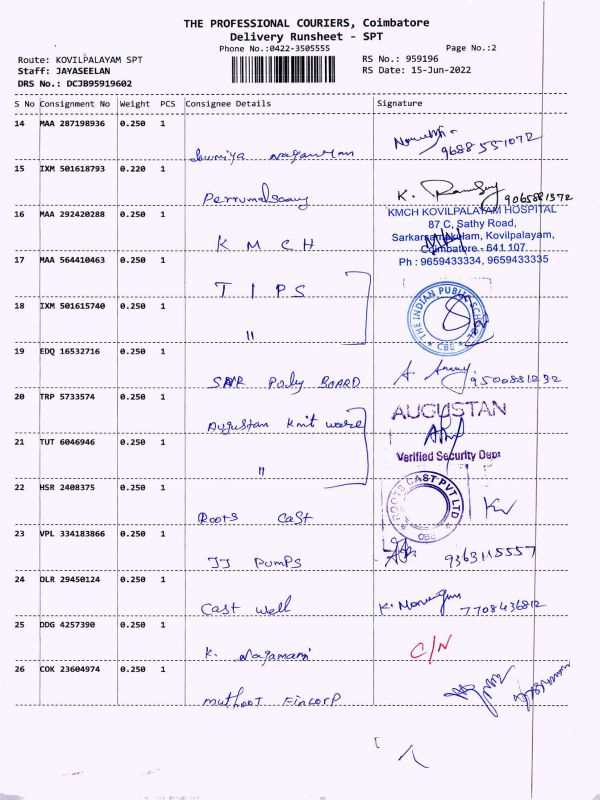 THE PROFESSIONAL COURIERS, Coimbatore
Delivery Runsheet - SPT
Phone No.:0422-3505555
Page No.:2
Route: KOVILPALAYAM SPT
RS No.: 959196
Staff: JAYASEELAN
RS Date: 15-Jun-2022
DRS No.: DCJB95919602
S No Consignment No Weight PCS Consignee Details Signature
14 MAA 287198936 0.250 1
9688551072
15 IXM 501618793 0.220 1
Perrumalsamy K. Ramsy 9065881372
16 MAA 292420288 0.250 1
KMCH KOVILPALAYAM HOSPITAL
87 C, Sathy Road,
Sarkarsamakulam, Kovilpalayam,
Coimbatore - 641 107
Ph : 9659433334, 9659433335
K M C H
17 MAA 564410463 0.250 1
T I P S
18 IXM 501615740 0.250 1
"
THE INDIAN PUBLIC SCHOOL
* CBE *
19 EDQ 16532716 0.250 1
SNR Poly BOARD
9500881032
20 TRP 5733574 0.250 1
Augustan Knit ware
AUGUSTAN
21 TUT 6046946 0.250 1
"
Verified Security Dept
22 HSR 2408375 0.250 1
Roots Cast
ROOTS CAST PVT LTD
* CBE *
23 VPL 334183866 0.250 1
JJ PUMPS 9363115557
24 DLR 29450124 0.250 1
Cast well 7708436812
25 DDG 4257390 0.250 1
K. Nagamani C/N
26 COK 23604974 0.250 1
Muthoot Fincorp